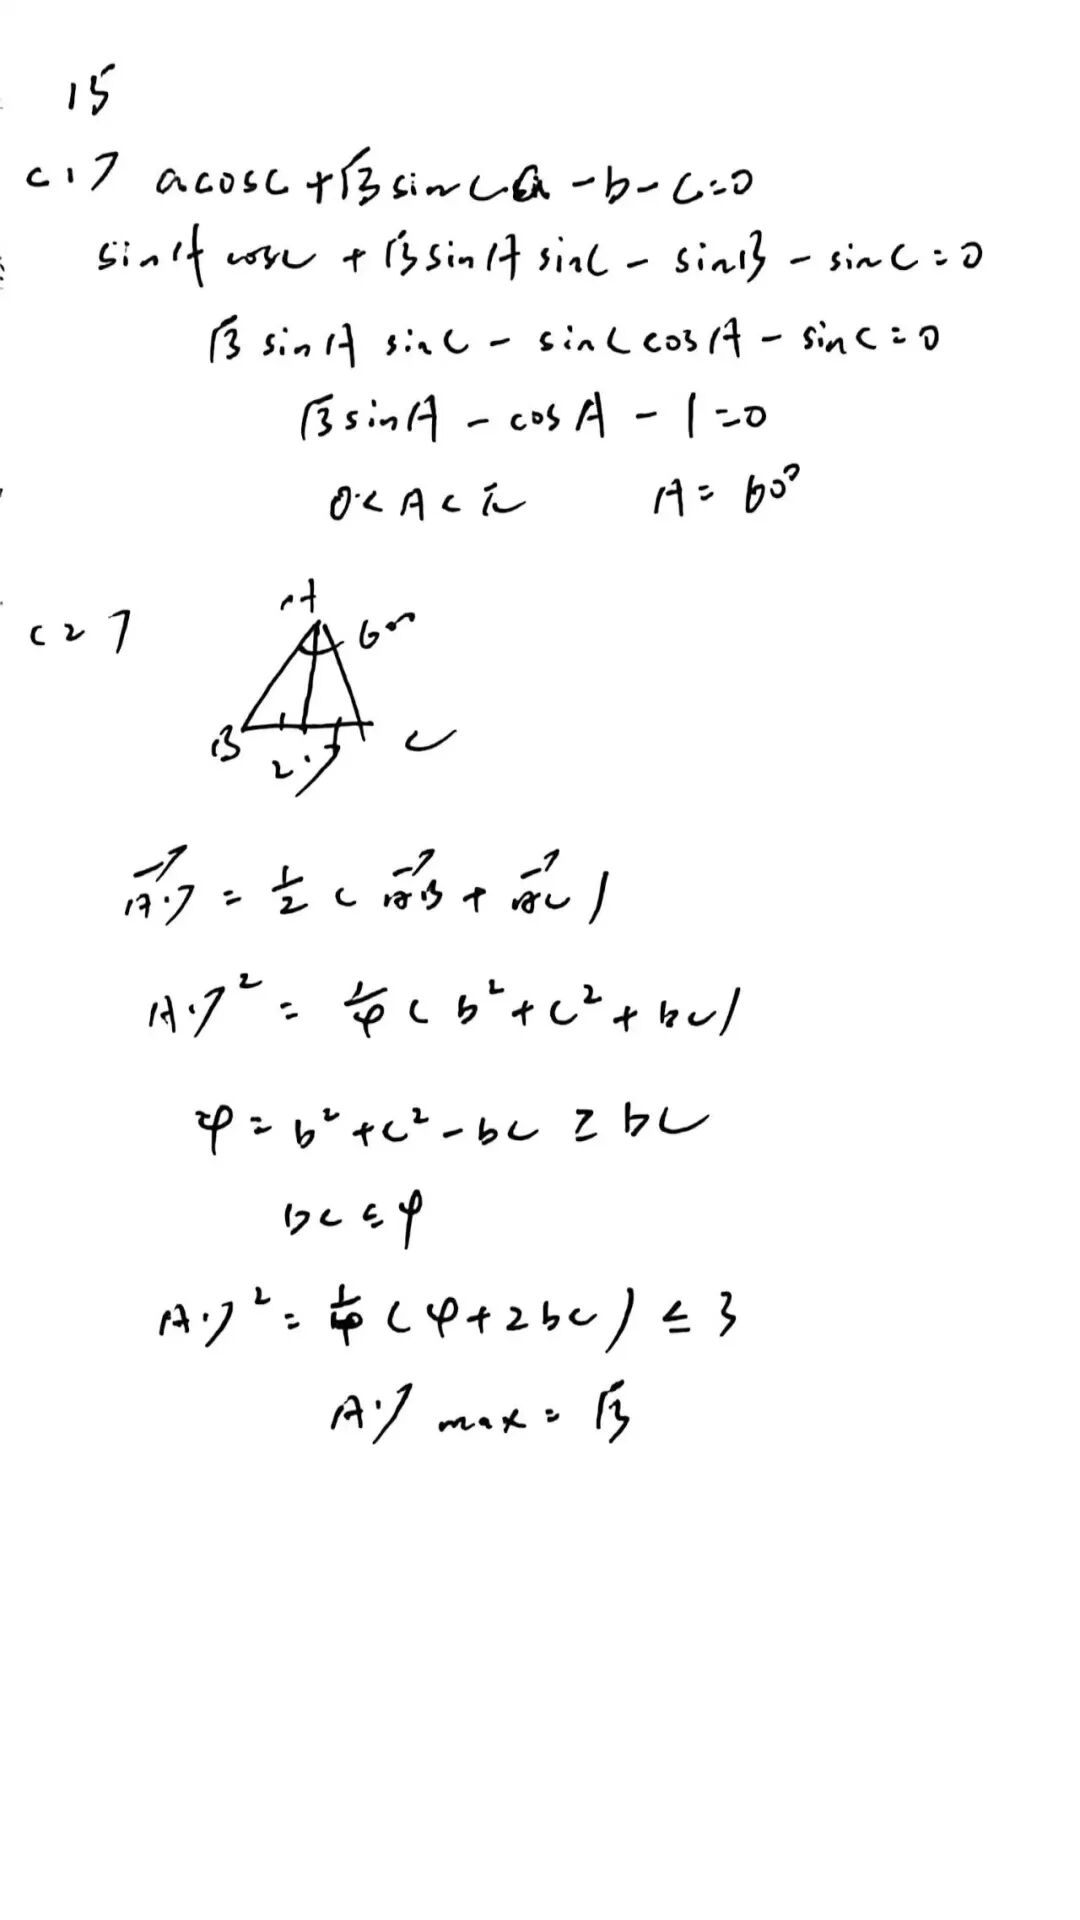 15
(1) acosC+√3sinCa-b-c=0
sinAcosC+√3sinAsinC-sinB-sinC=0
√3sinAsinC-sinCcosA-sinC=0
√3sinA-cosA-1=0
0<A<π A=60°
(2)
A
60°
B C
2 D
AD=½(AB+AC)
AD²=¼(b²+c²+bc)
4=b²+c²-bc≥bc
bc≤4
AD²=¼(4+2bc)≤3
AD max=√3